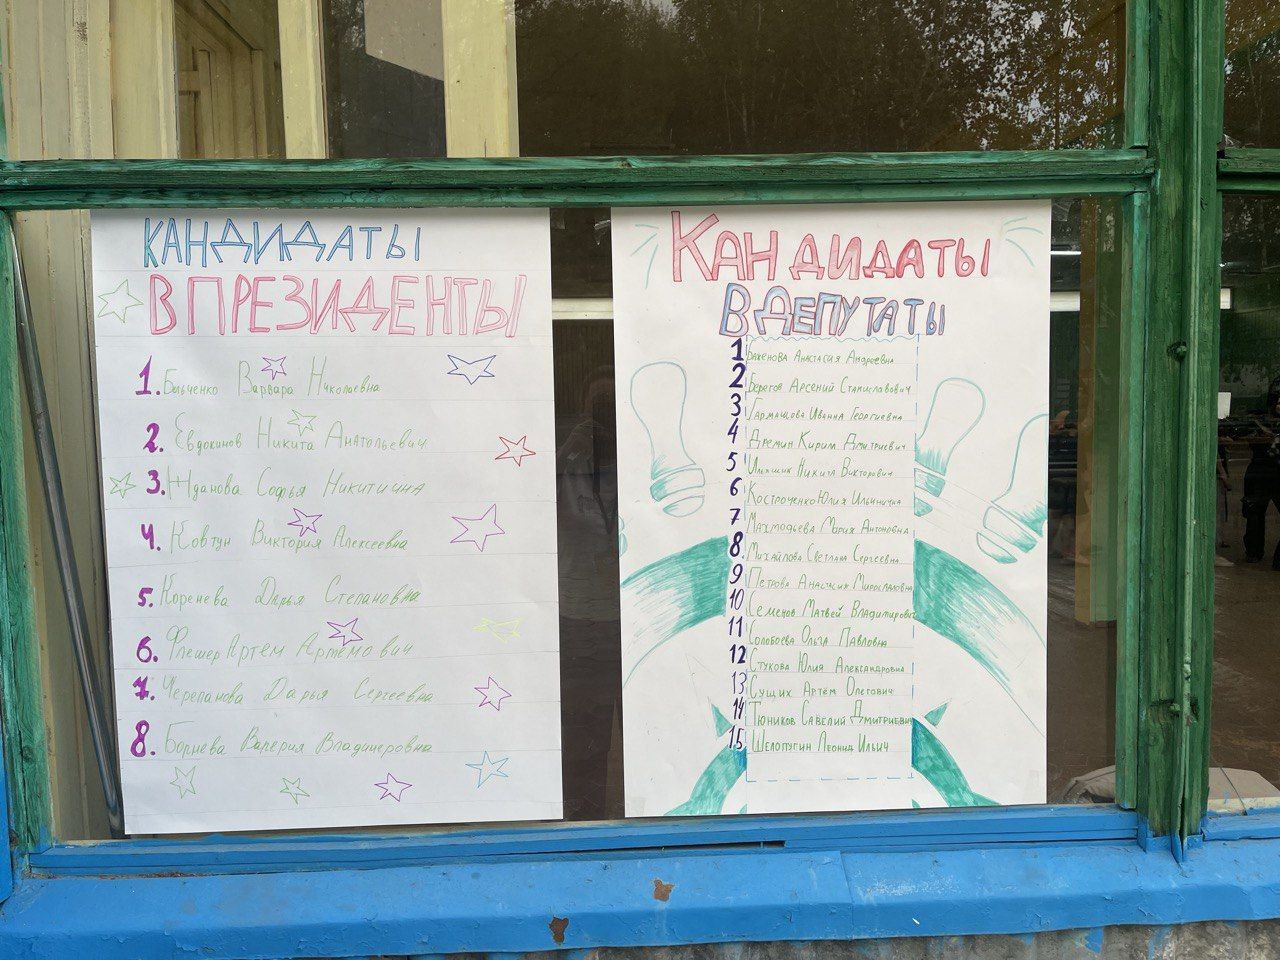 КАНДИДАТЫ
В ПРЕЗИДЕНТЫ
1. Варвара Николаевна
2. Евдокимов Никита Анатольевич
3. Жданова Софья Никитична
4. Ковтун Виктория Алексеевна
5. Коренева Дарья Степановна
6. Флешер Артём Артёмович
7. Черепанова Дарья Сергеевна
8. Валерия Владимировна
КАНДИДАТЫ
В ДЕПУТАТЫ
1 Баженова Анастасия Андреевна
2 Берегов Арсений Станиславович
3 Гармашова Иванна Георгиевна
4 Дремин Кирим Дмитриевич
5 Никита Викторович
6 Костроченко Юлия Ильинична
7 Мария Антоновна
8. Михайлова Светлана Сергеевна
9 Петрова Анастасия Мирославовна
10 Семенов Матвей Владимирович
11 Ольга Павловна
12 Стукова Юлия Александровна
13 Сущих Артём Олегович
14 Тюников Савелий Дмитриевич
15 Шелопугин Леонид Ильич